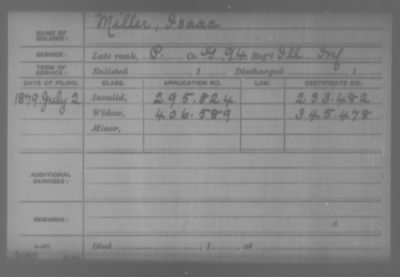 NAME OF SOLDIER: Miller, Isaac
SERVICE: Late rank, P. Co. G, 94 Reg't Ill Inf
TERM OF SERVICE: Enlisted , 1 Discharged , 1
DATE OF FILING. CLASS. APPLICATION NO. LAW. CERTIFICATE NO.
1879 July 2 Invalid, 295.824 233.482
Widow, 406.589 345.478
Minor,
ADDITIONAL SERVICES:
REMARKS:
Died , 1 , at